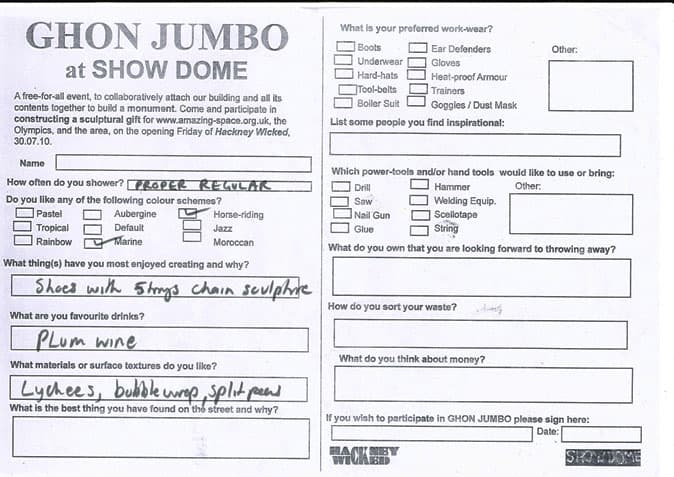 GHON JUMBO
at SHOW DOME
A free-for-all event, to collaboratively attach our building and all its
contents together to build a monument. Come and participate in
constructing a sculptural gift for www.amazing-space.org.uk, the
Olympics, and the area, on the opening Friday of Hackney Wicked,
30.07.10.
Name
How often do you shower? PROPER REGULAR
Do you like any of the following colour schemes?
Pastel Aubergine Horse-riding
Tropical Default Jazz
Rainbow Marine Moroccan
What thing(s) have you most enjoyed creating and why?
Shoes with chain sculpture
What are you favourite drinks?
Plum wine
What materials or surface textures do you like?
Lychees, bubble wrap, split peas
What is the best thing you have found on the street and why?
What is your preferred work-wear?
Boots Ear Defenders Other:
Underwear Gloves
Hard-hats Heat-proof Armour
Tool-belts Trainers
Boiler Suit Goggles / Dust Mask
List some people you find inspirational:
Which power-tools and/or hand tools would like to use or bring:
Drill Hammer Other:
Saw Welding Equip.
Nail Gun Scellotape
Glue String
What do you own that you are looking forward to throwing away?
How do you sort your waste?
What do you think about money?
If you wish to participate in GHON JUMBO please sign here:
Date:
HACKNEY
WICKED
SHOWDOME